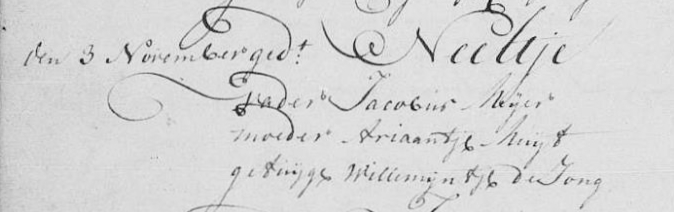 den 3 November ged.t Neeltje
vader Jacobus Meijer
moeder Ariaantje Muijt
getuijge Willemijntje de Jong